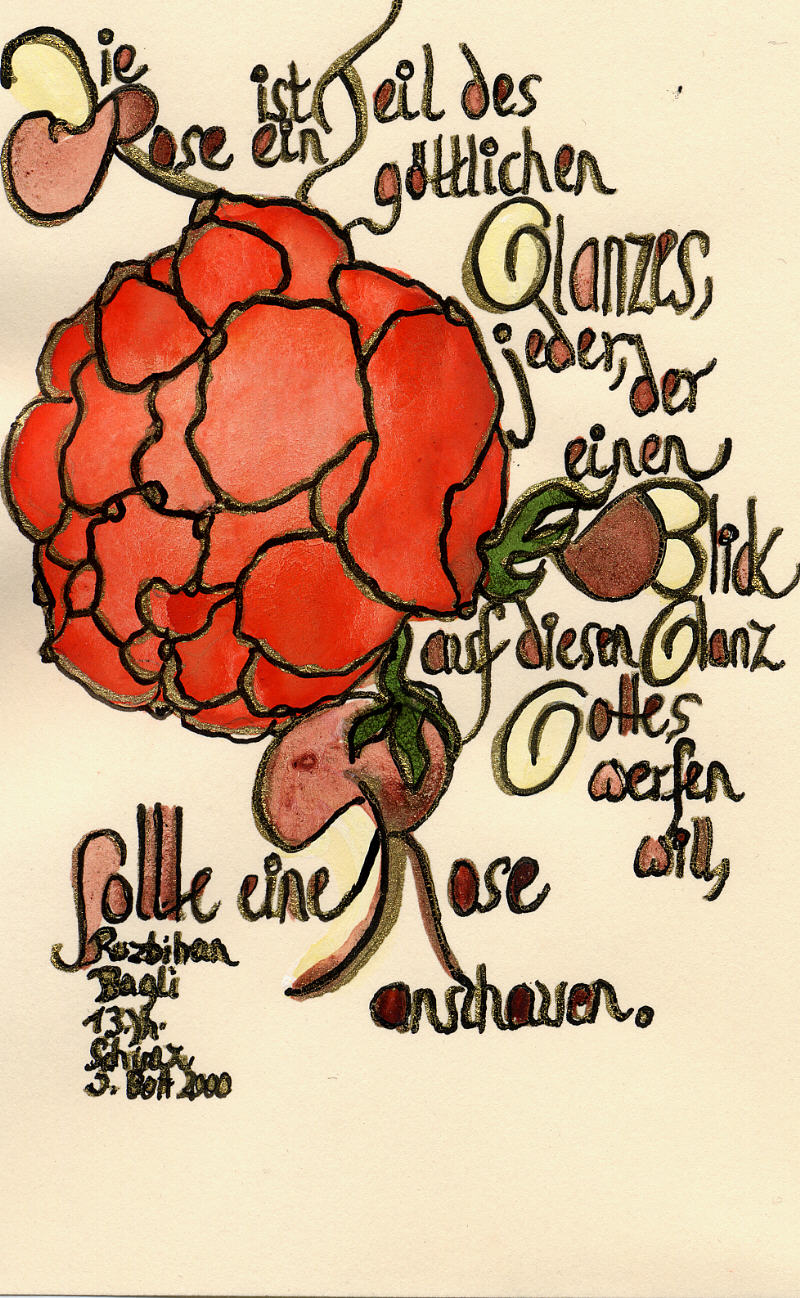 Die
Rose ist ein Teil des
göttlichen
Glanzes,
jeder, der
einen
Blick
auf diesen Glanz
Gottes
werfen
will,
sollte eine Rose
anschauen.
Ruzbihan
Baqli
13. Jh.
Schiraz,
J. Bott 2000